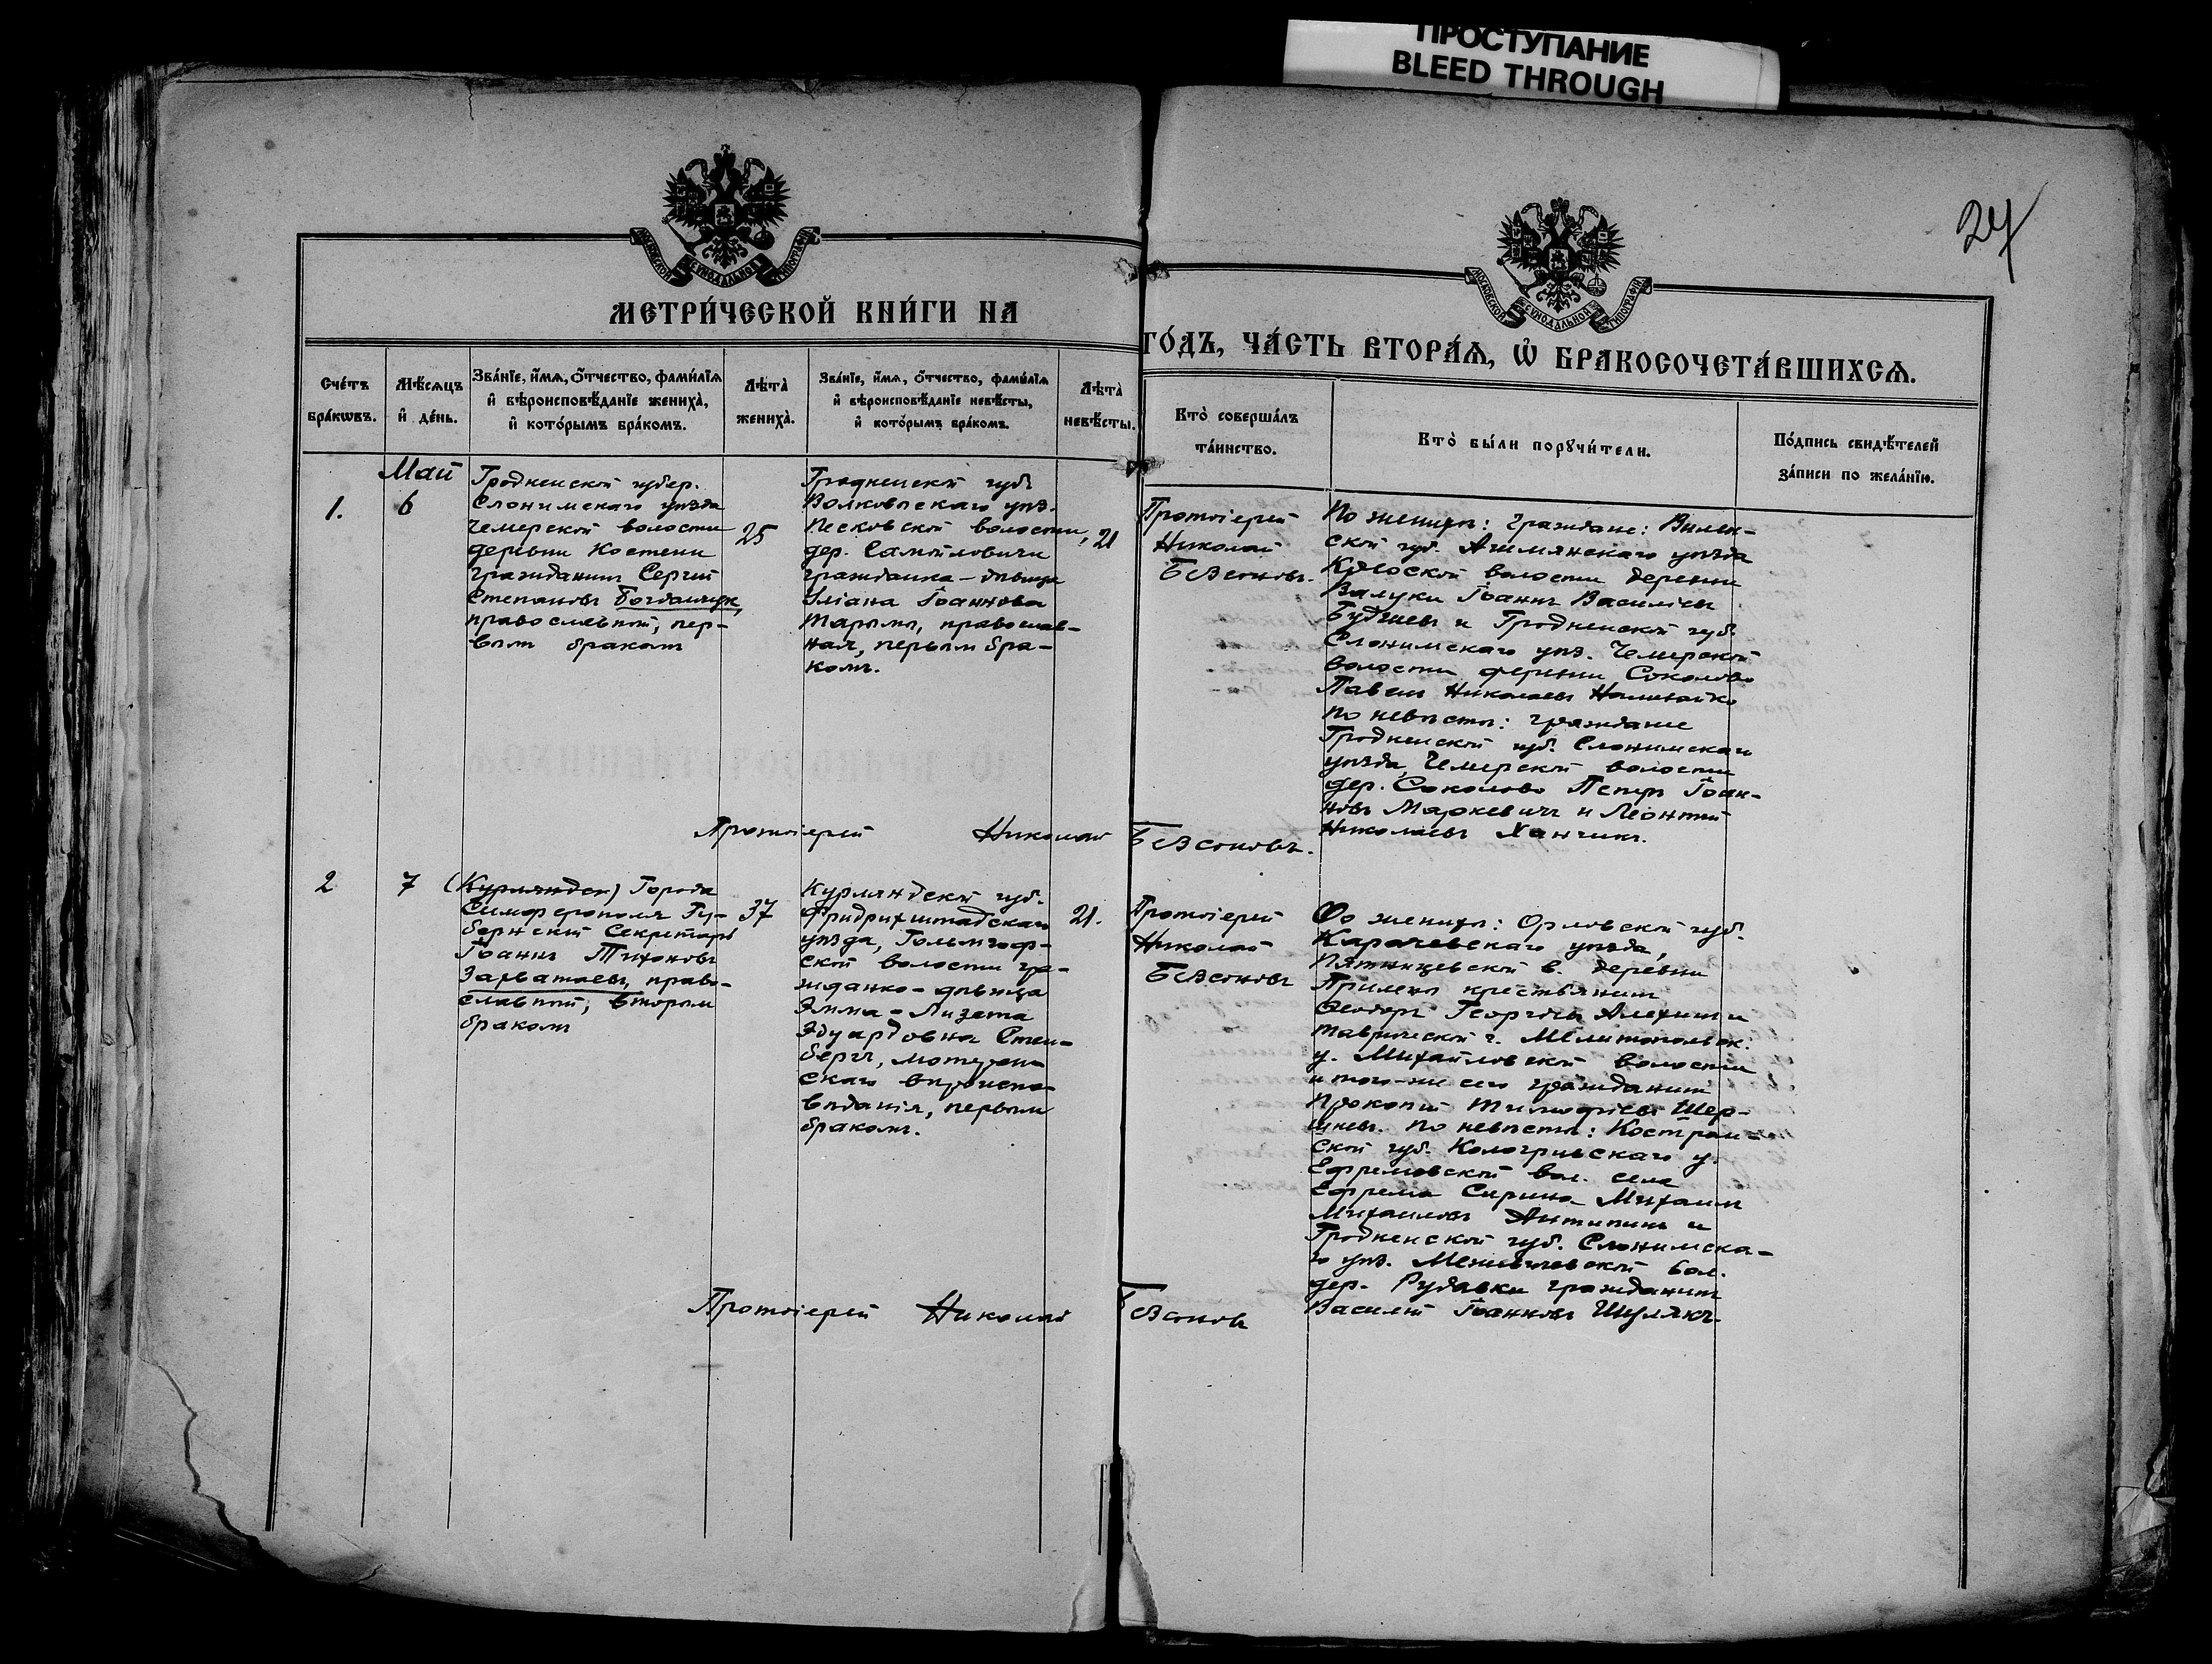 ПРОСТУПАНИЕ
BLEED THROUGH
27
МЕТРИ́ЧЕСКОЙ КНИ́ГИ НА
ГО́ДЪ, ЧА́СТЬ ВТОРА́Ѧ, Ѡ҆ БРАКОСОЧЕТА́ВШИХСѦ.
Сче́тъ бра́кѡвъ.
Мѣ́сяцъ и҆ де́нь.
Зва́нїе, и҆́мѧ, ѻ҆́тчество, фами́лїѧ
и҆ вѣроисповѣ́данїе жениха̀,
и҆ кото́рымъ бра́комъ.
Лѣта̀ жениха̀.
Зва́нїе, и҆́мѧ, ѻ҆́тчество, фами́лїѧ
и҆ вѣроисповѣ́данїе невѣ́сты,
и҆ кото́рымъ бра́комъ.
Лѣта̀ невѣ́сты.
Кто̀ соверша́лъ
та́инство.
Кто̀ бы́ли порꙋчи́тели.
По́дпись свидѣ́телей
за́писи по жела́нїю.
1.
Май
6
Гродненской губер.
Слонимскаго уѣзда
Чемерской волости
деревни Костени
гражданинъ Сергій
Степановъ Богданчук,
православный, пер-
вымъ бракомъ
25
Гродненской губ.
Волковыскаго уѣз.
Песковской волости,
дер. Самойловичи
гражданка-дѣвица
Іоаннова
православ-
ная, первымъ бра-
комъ.
21
Протоіерей
Николай
Бѣсоновъ.
По женихѣ: граждане: Вилен-
ской губ. Ашмянскаго уѣзда
волости деревни
Валуки Іоаннъ Василіевъ
и Гродненской губ.
Слонимскаго уѣз. Чемерской
волости деревни Соколово
Павелъ Николаевъ
По невѣстѣ: граждане
Гродненской губ. Слонимскаго
уѣзда Чемерской волости
дер. Соколово Петръ Іоан-
новъ Маркевичъ и Леонтій
Николаевъ Ханчикъ.
Протоіерей Николай Бѣсоновъ.
2
7
(Курляндск) Города
Симферополя Гу-
бернскій Секретарь
Іоаннъ Тихоновъ
право-
славный, вторымъ
бракомъ
37
Курляндской губ.
Фридрихштадскаго
уѣзда, Гольмгоф-
ской волости гра-
жданка-дѣвица
Элма-Лизета
Эдуардовна Стен-
бергъ, лютеран-
скаго вѣроиспо-
вѣданія, первымъ
бракомъ.
21.
Протоіерей
Николай
Бѣсоновъ
По женихѣ: Орловской губ.
Карачевскаго уѣзда,
Пятницевской в. деревни
крестьянинъ
Ѳеодоръ Георгіевъ Алехинъ и
Таврической г. Мелитопольск.
у. Михайловской волости
и того-же села гражданинъ
Прокопій Тимофіевъ Шер-
шневъ. По невѣстѣ: Костром-
ской губ. Кологривскаго у.
Ефремовской вол. села
Ефрема Сирина Михаилъ
Михаиловъ Антипинъ и
Гродненской губ. Слонимска-
го уѣз. вол.
дер. Рудавки гражданинъ
Василій Іоанновъ Шулякъ.
Протоіерей Николай Бѣсоновъ